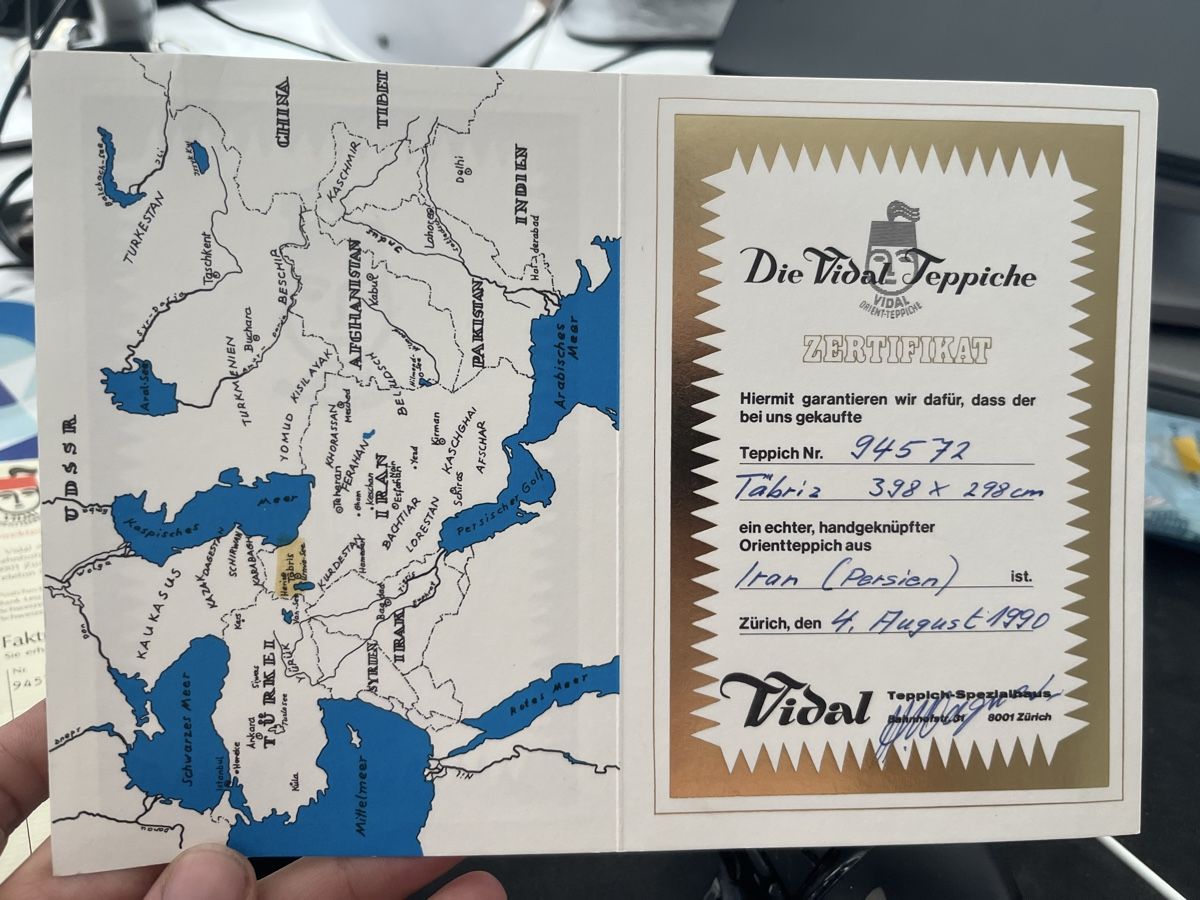 Die Vidal Teppiche
VIDAL
ORIENT-TEPPICHE
ZERTIFIKAT
Hiermit garantieren wir dafür, dass der
bei uns gekaufte
Teppich Nr. 94572
Täbriz 398 x 298 cm
ein echter, handgeknüpfter
Orientteppich aus
Iran (Persien) ist.
Zürich, den 4. August 1990
Vidal
Teppich-Spezialhaus
Bahnhofstr. 31 8001 Zürich
UDSSR
CHINA
TIBET
INDIEN
KASCHMIR
Delhi
Lahore
Indus
TURKESTAN
Balchasch-See
Ili
Taschkent
Aral-See
Buchara
TURKMENIEN
BESCHIR
AFGHANISTAN
Kabul
PAKISTAN
Arabisches
Meer
YOMUD
KISILAYAK
BELUTSCH
KHORASSAN
Mesched
Teheran
FERAHAN
Ghom
Keschan
IRAN
Esfahan
Yezd
Kirman
KASCHGHAI
AFSCHAR
Schiras
BACHTIAR
LORESTAN
Persischer Golf
Kaspisches Meer
KAUKASUS
KAZAK
DAGESTAN
SCHIRWAN
KARABAGH
Täbris
KURDESTAN
Hamadan
Bagdad
IRAK
SYRIEN
Rotes Meer
Nil
Kars
Van-See
TÜRKEI
YÜRÜK
Siwas
Ankara
Tuzlasee
Kula
Hereke
Istanbul
Schwarzes Meer
Mittelmeer
Don
Dnepr
Donau
Fakt
Nr.
945